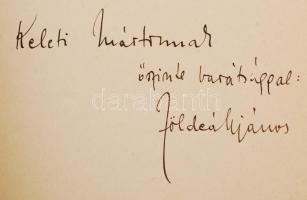 Keleti Mártonnak
őszinte barátsággal:
Földeák János
darabanth